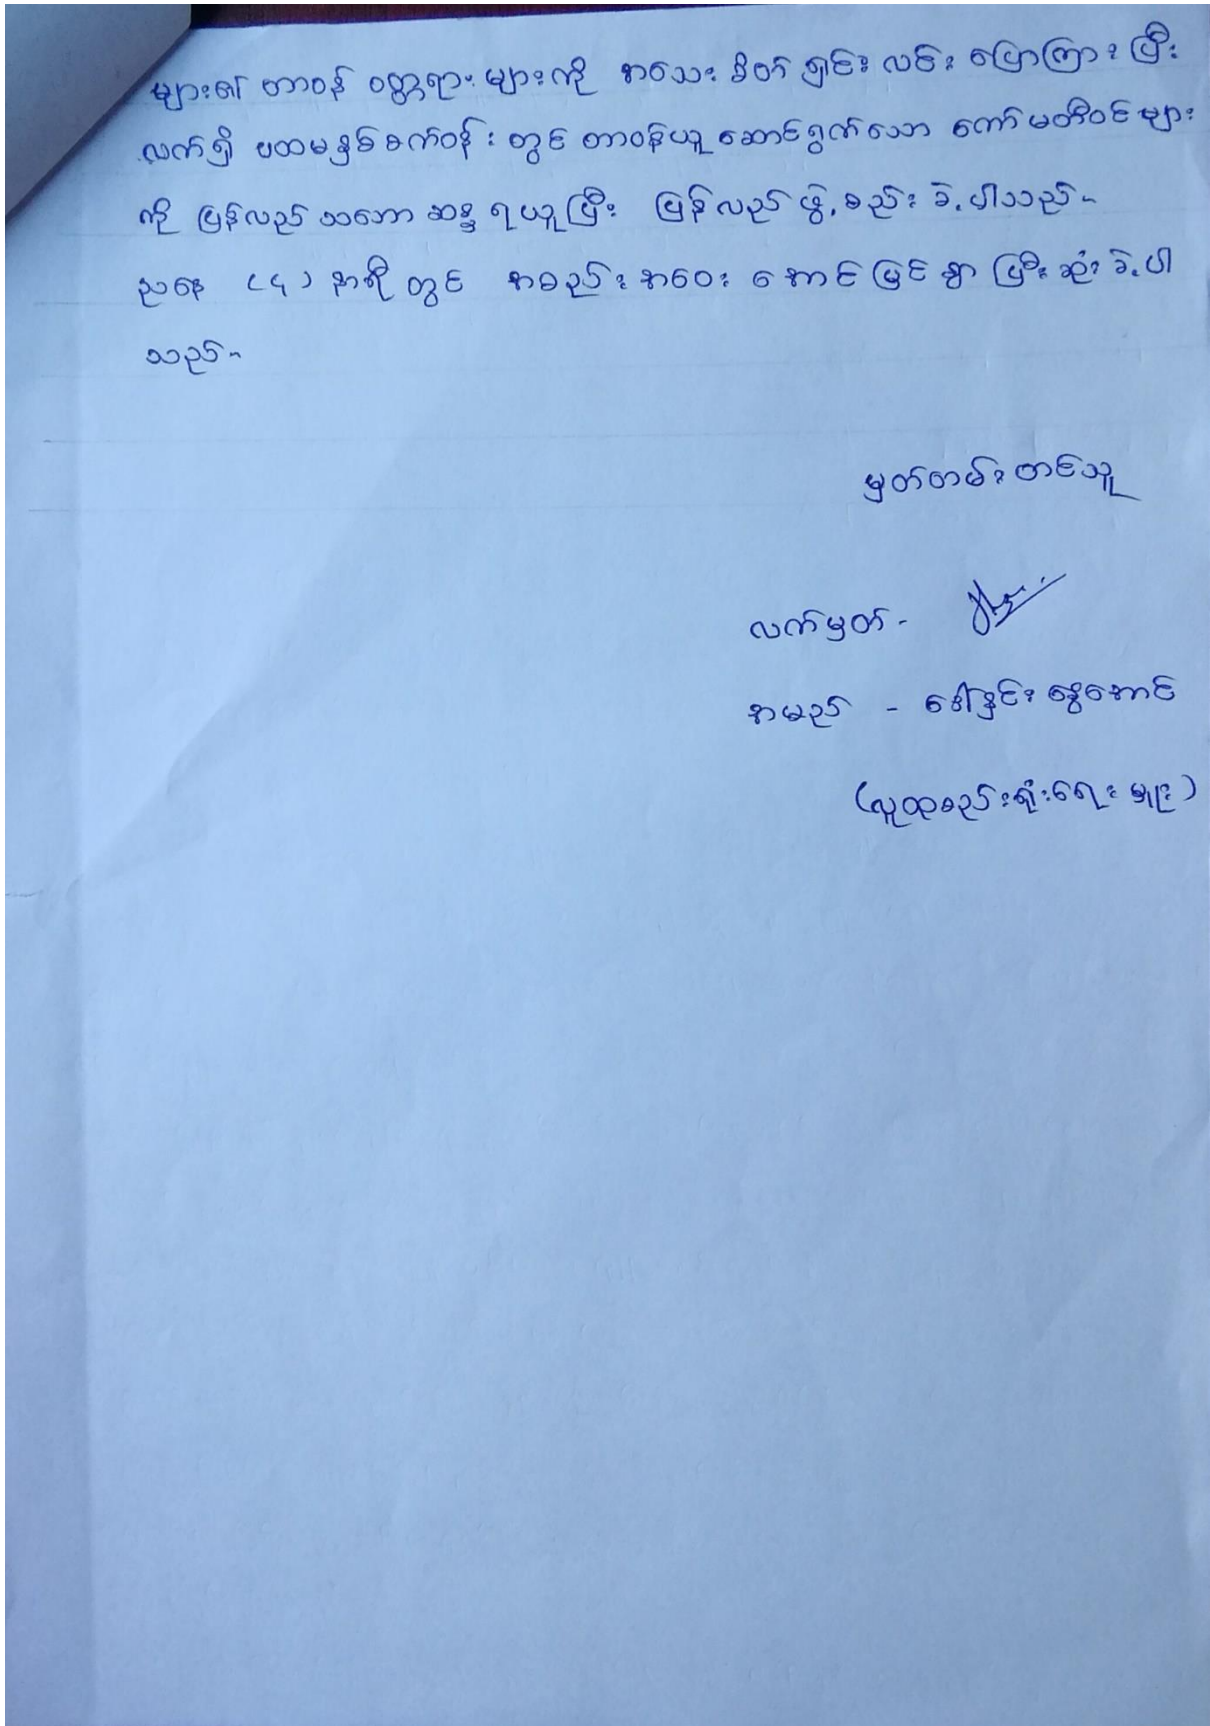 များ၏ တာဝန် ဝတ္တရားများကို အသေးစိတ် ရှင်းလင်း ပြောကြားပြီး
လက်ရှိ ပထမနှစ်စက်ဝန်းတွင် တာဝန်ယူ ဆောင်ရွက်သော ကော်မတီဝင်များ
ကို ပြန်လည် သဘောဆန္ဒ ရယူပြီး ပြန်လည် ဖွဲ့စည်းခဲ့ပါသည်။
ညနေ (၄) နာရီတွင် အစည်းအဝေး အောင်မြင်စွာ ပြီးဆုံးခဲ့ပါ
သည်။
မှတ်တမ်းတင်သူ
လက်မှတ် -
အမည် - ဒေါ်နှင်းနွေအောင်
(လူထုစည်းရုံးရေးမှူး)